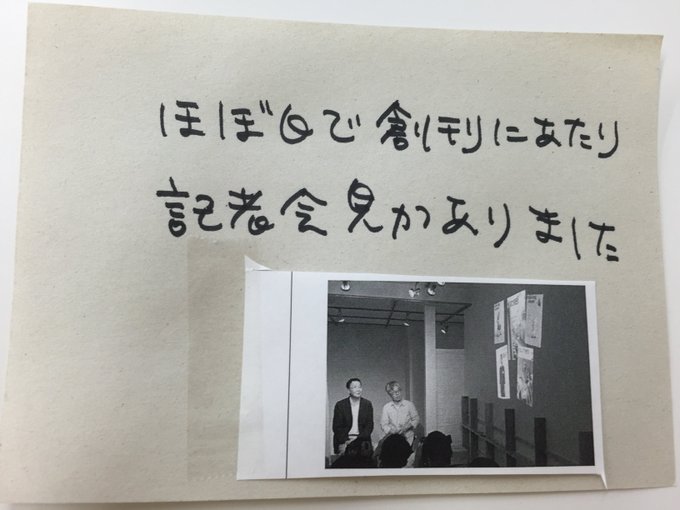 ほぼ日で創刊にあたり
記者会見がありました